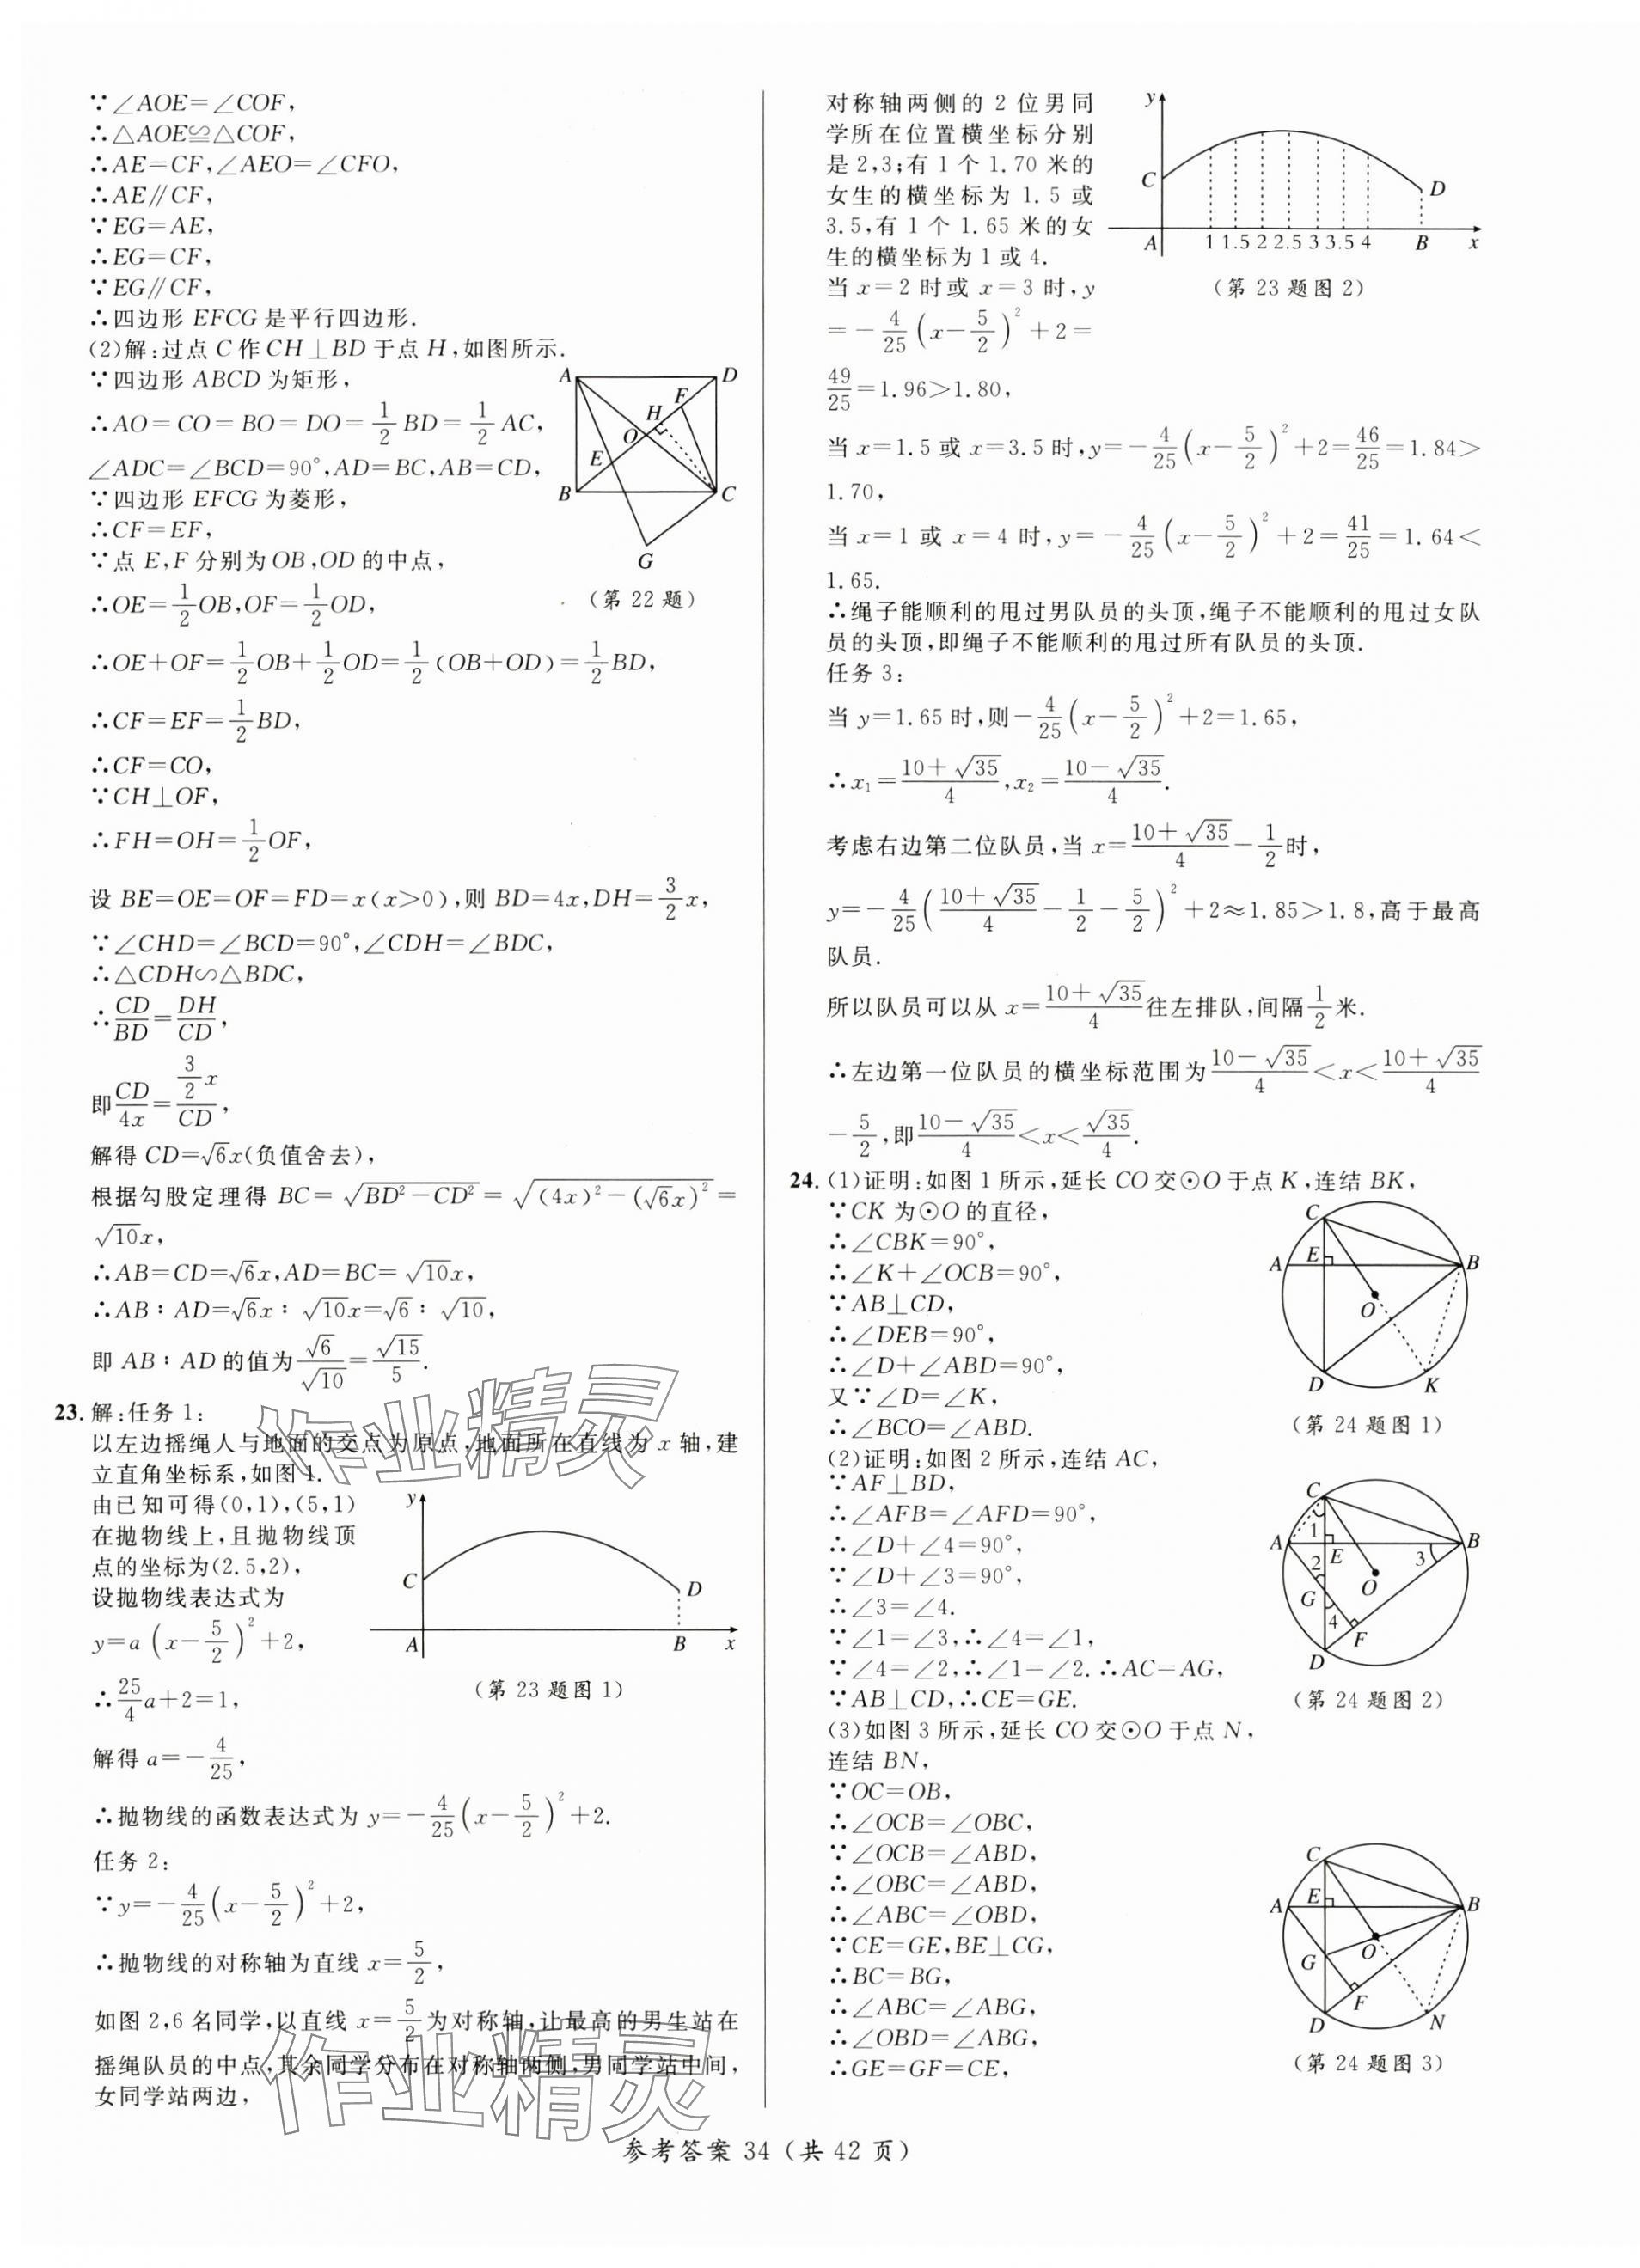 ∵∠AOE=∠COF,
∴△AOE≌△COF,
∴AE=CF,∠AEO=∠CFO,
∴AE∥CF,
∵EG=AE,
∴EG=CF,
∵EG∥CF,
∴四边形 EFCG 是平行四边形.
(2)解:过点 C 作 CH⊥BD 于点 H,如图所示.
∵四边形 ABCD 为矩形,
∴AO=CO=BO=DO=1/2 BD=1/2 AC,
∠ADC=∠BCD=90°,AD=BC,AB=CD,
∵四边形 EFCG 为菱形,
∴CF=EF,
∵点 E,F 分别为 OB,OD 的中点,
∴OE=1/2 OB,OF=1/2 OD,
∴OE+OF=1/2 OB+1/2 OD=1/2 (OB+OD)=1/2 BD,
∴CF=EF=1/2 BD,
∴CF=CO,
∵CH⊥OF,
∴FH=OH=1/2 OF,
设 BE=OE=OF=FD=x(x>0),则 BD=4x,DH=3/2 x,
∵∠CHD=∠BCD=90°,∠CDH=∠BDC,
∴△CDH∽△BDC,
∴CD/BD=DH/CD,
即 CD/4x=(3/2 x)/CD,
解得 CD=√6x(负值舍去),
根据勾股定理得 BC=√(BD²-CD²)=√((4x)²-(√6x)²)=
√10x,
∴AB=CD=√6x,AD=BC=√10x,
∴AB∶AD=√6x∶√10x=√6∶√10,
即 AB∶AD 的值为 √6/√10=√15/5.
A
D
F
H
O
E
B
C
G
(第 22 题)
23. 解:任务 1:
以左边摇绳人与地面的交点为原点,地面所在直线为 x 轴,建
立直角坐标系,如图 1.
由已知可得(0,1),(5,1)
在抛物线上,且抛物线顶
点的坐标为(2.5,2),
设抛物线表达式为
y=a(x-5/2)²+2,
∴25/4 a+2=1,
解得 a=-4/25,
y
C
D
A
B
x
(第 23 题图 1)
∴抛物线的函数表达式为 y=-4/25(x-5/2)²+2.
任务 2:
∵y=-4/25(x-5/2)²+2,
∴抛物线的对称轴为直线 x=5/2,
如图 2,6 名同学,以直线 x=5/2 为对称轴,让最高的男生站在
摇绳队员的中点,其余同学分布在对称轴两侧,男同学站中间,
女同学站两边,
对称轴两侧的 2 位男同
学所在位置横坐标分别
是 2,3;有 1 个 1.70 米的
女生的横坐标为 1.5 或
3.5,有 1 个 1.65 米的女
生的横坐标为 1 或 4.
当 x=2 时或 x=3 时,y
=-4/25(x-5/2)²+2=
49/25=1.96>1.80,
y
C
D
A
1 1.5 2 2.5 3 3.5 4
B
x
(第 23 题图 2)
当 x=1.5 或 x=3.5 时,y=-4/25(x-5/2)²+2=46/25=1.84>
1.70,
当 x=1 或 x=4 时,y=-4/25(x-5/2)²+2=41/25=1.64<
1.65.
∴绳子能顺利的甩过男队员的头顶,绳子不能顺利的甩过女队
员的头顶,即绳子不能顺利的甩过所有队员的头顶.
任务 3:
当 y=1.65 时,则-4/25(x-5/2)²+2=1.65,
∴x₁=(10+√35)/4,x₂=(10-√35)/4.
考虑右边第二位队员,当 x=(10+√35)/4-1/2 时,
y=-4/25((10+√35)/4-1/2-5/2)²+2≈1.85>1.8,高于最高
队员.
所以队员可以从 x=(10+√35)/4 往左排队,间隔 1/2 米.
∴左边第一位队员的横坐标范围为 (10-√35)/4<x<(10+√35)/4
-5/2,即 (10-√35)/4<x<√35/4.
24. (1)证明:如图 1 所示,延长 CO 交⊙O 于点 K,连结 BK,
∵CK 为⊙O 的直径,
∴∠CBK=90°,
∴∠K+∠OCB=90°,
∵AB⊥CD,
∴∠DEB=90°,
∴∠D+∠ABD=90°,
又∵∠D=∠K,
∴∠BCO=∠ABD.
C
A
E
B
O
D
K
(第 24 题图 1)
(2)证明:如图 2 所示,连结 AC,
∵AF⊥BD,
∴∠AFB=∠AFD=90°,
∴∠D+∠4=90°,
∵∠D+∠3=90°,
∴∠3=∠4.
∵∠1=∠3,∴∠4=∠1,
∵∠4=∠2,∴∠1=∠2.∴AC=AG,
∵AB⊥CD,∴CE=GE.
C
1
A
E
B
2
3
O
G
4
F
D
(第 24 题图 2)
(3)如图 3 所示,延长 CO 交⊙O 于点 N,
连结 BN,
∵OC=OB,
∴∠OCB=∠OBC,
∵∠OCB=∠ABD,
∴∠OBC=∠ABD,
∴∠ABC=∠OBD,
∵CE=GE,BE⊥CG,
∴BC=BG,
∴∠ABC=∠ABG,
∴∠OBD=∠ABG,
∴GE=GF=CE,
C
A
E
B
O
G
F
D
N
(第 24 题图 3)
作业精灵
作业精灵
参考答案 34 (共 42 页)